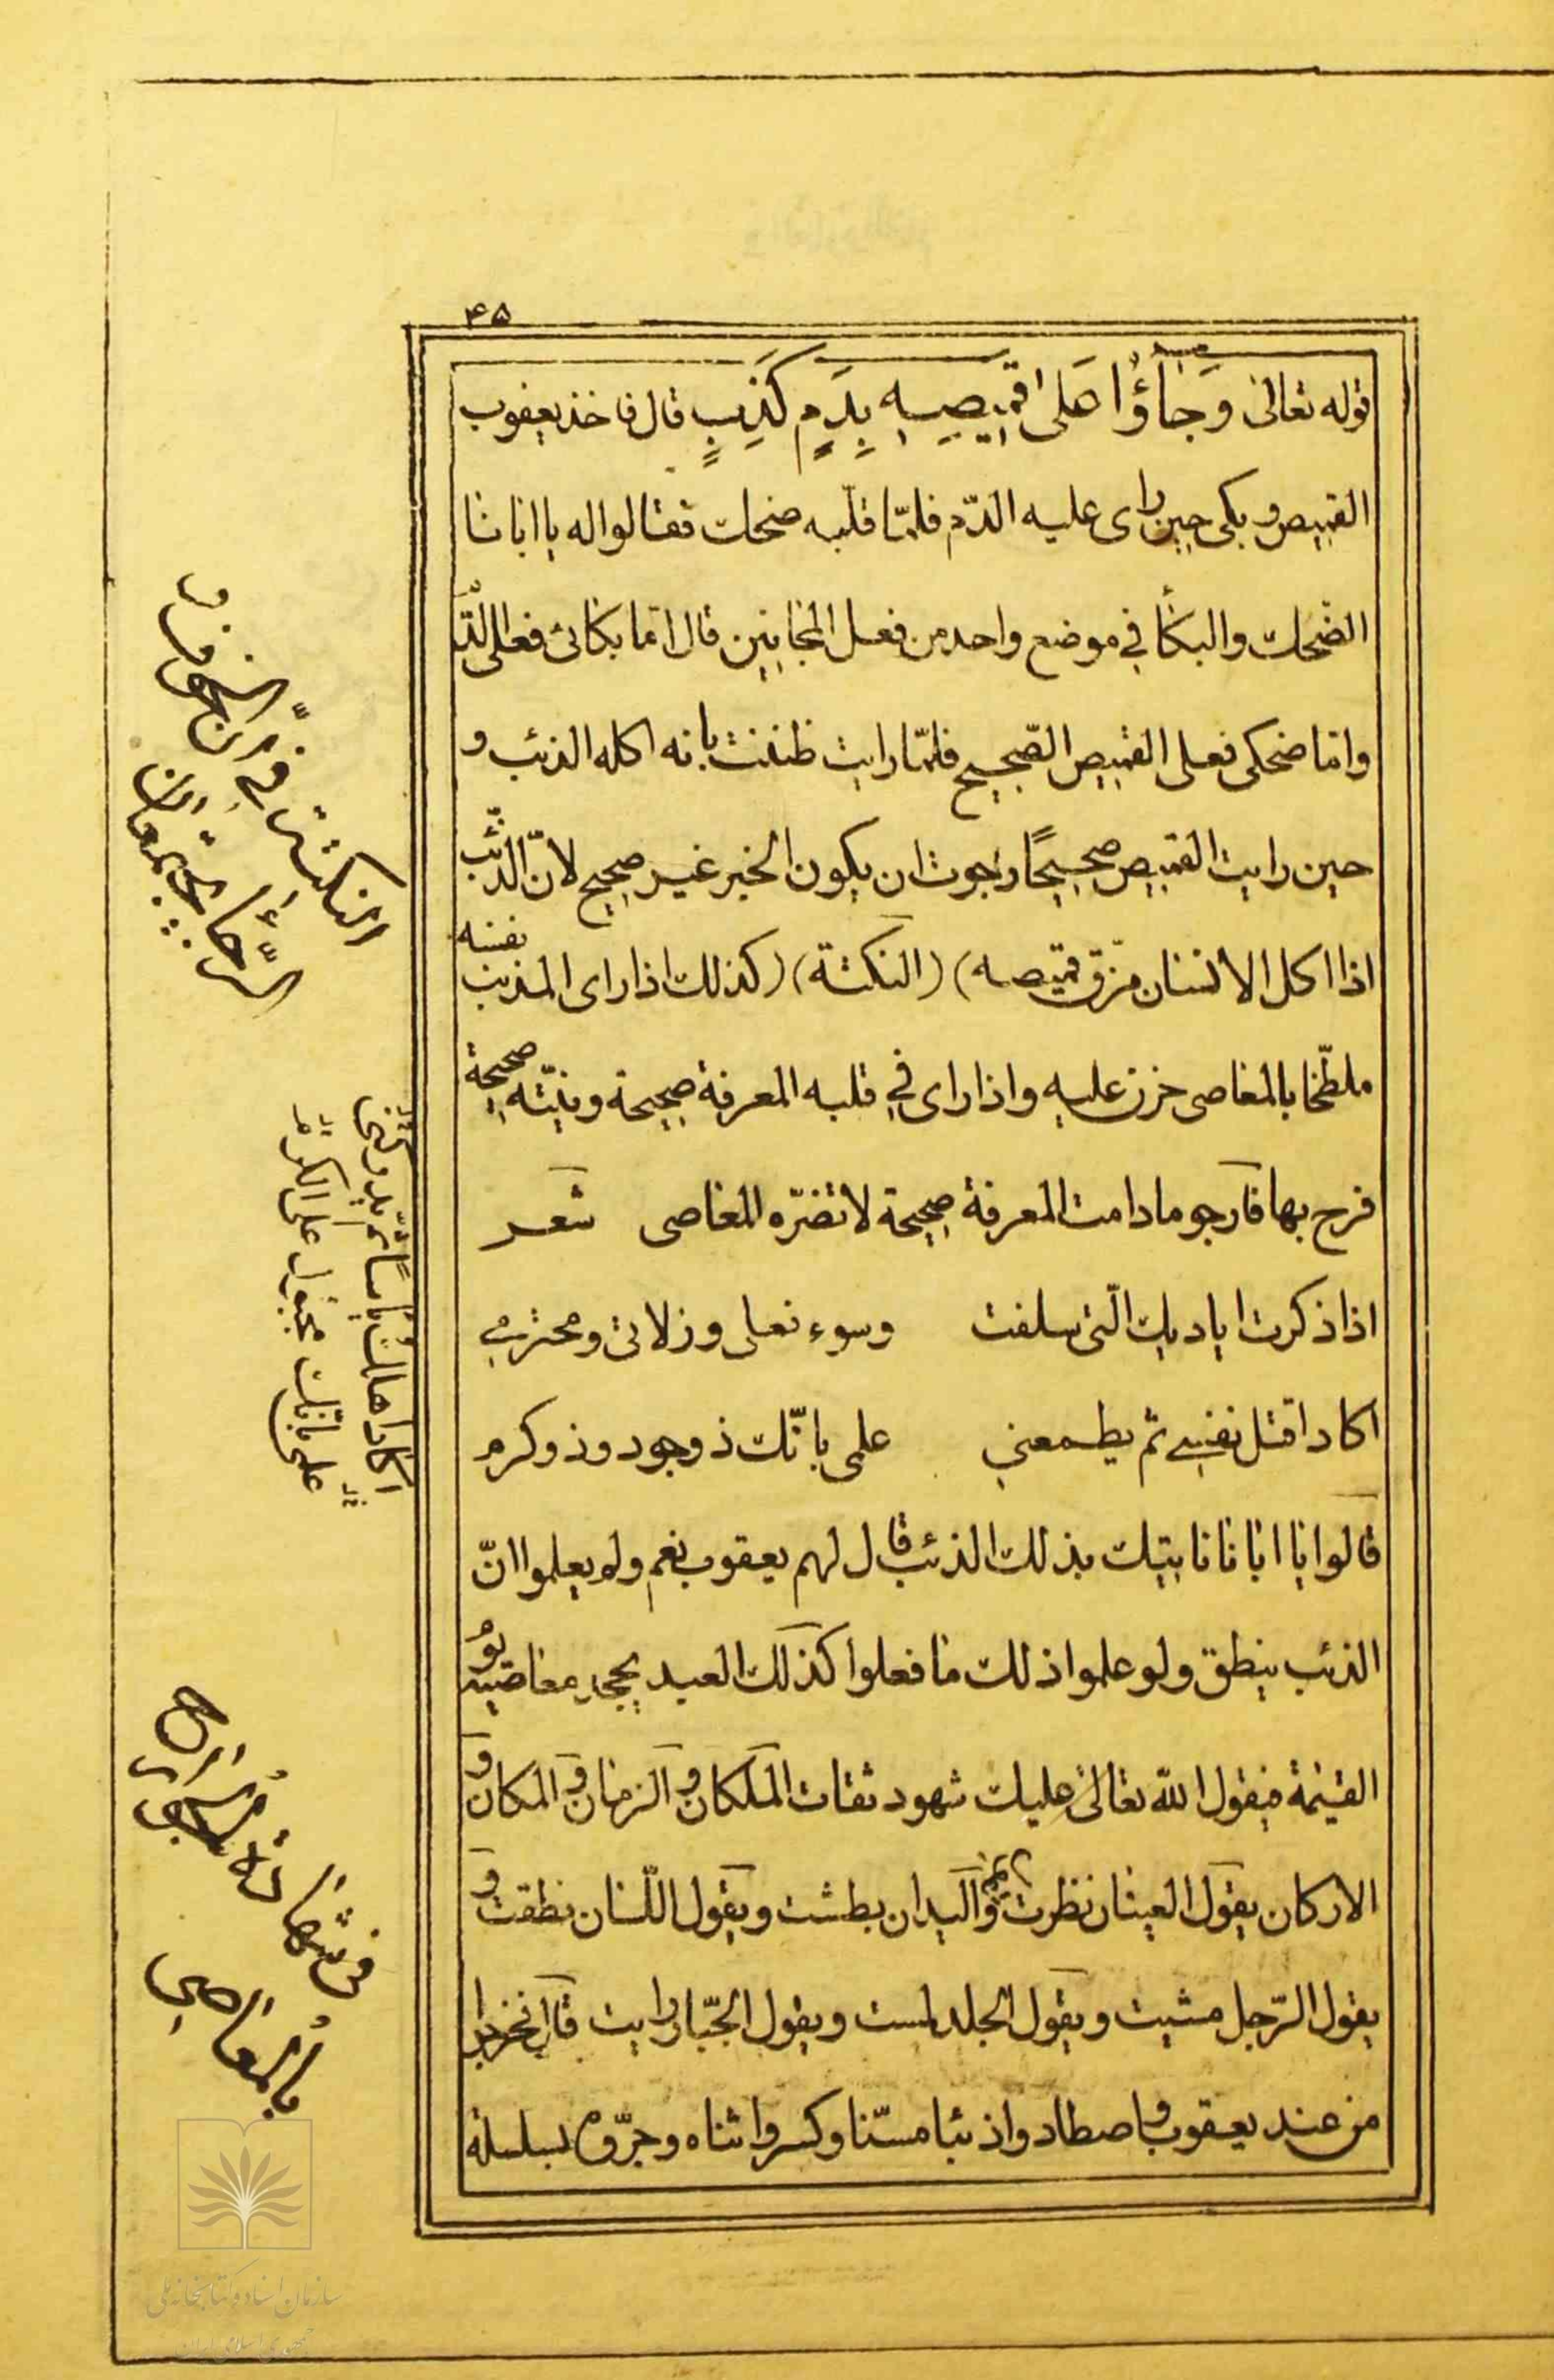 ۴۵
قوله تعالی وَجَاؤُا عَلی قَمِیصِهِ بِدَمٍ کَذِبٍ قال فاخذ یعقوب
القمیص و بکی حین رای علیه الدّم فلمّا قلّبه ضحک فقالوا له یا ابانا
الضّحک والبکأ فی موضع واحد من فعل المجانین قال امّا بکائی فعلی الدّم
وامّا ضحکی فعلی القمیص الصّحیح فلمّا رایت ظننت بانه اکله الذئب و
حین رایت القمیص صحیحًا رجوت ان یکون الخبر غیر صحیح لانّ الذّئب
اذا اکل الانسان مزّق قمیصه) (النکتة) (کذلک اذا رای المذنب نفسه
ملطّخا بالمعاصی حزن علیه واذا رای فی قلبه المعرفة صحیحة ونیّته صحیحة
فرح بها فآرجو مادامت المعرفة صحیحة لا تضرّه المعاصی شعر
اذا ذکرت ایادیک الّتی سلفت وسوء فعلی وزلاتی ومجترمی
اکاد اقتل نفسی ثم یطمعنی علمی بانّک ذوجود وذوکرم
قالوا یا ابانا ناتیک بذلک الذئب قال لهم یعقوب نعم ولم یعلموا انّ
الذئب ینطق ولو علموا ذلک ما فعلوا کذلک العبد یجحد معاصیه یوم
القیمة فیقول الله تعالی علیک شهود ثقات الملکان و الزمان و المکان و
الارکان یقول العینان نظرت و الیدان بطشت ویقول اللّسان نطقت و
یقول الرّجل مشیت ویقول الجلد لمست ویقول الجبّار رایت قال فخرجوا
من عند یعقوب و اصطادوا ذئبا مسنّا وکسروا ثناه وجرّوه بسلسلة
النکتة فی ان الخوف و
الرّجأ
اکاد اهلک یأسًا
علمی بانّک مجبول علی الکرم
فی شهادة
بالمعاصی
سازمان اسناد و کتابخانه ملی
جمهوری اسلامی ایران